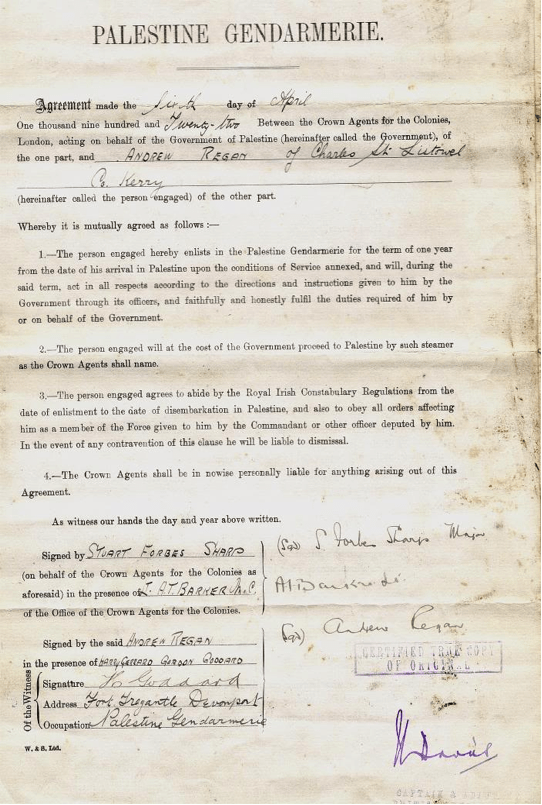 PALESTINE GENDARMERIE.
Agreement made the sixth day of April
One thousand nine hundred and Twenty-two Between the Crown Agents for the Colonies,
London, acting on behalf of the Government of Palestine (hereinafter called the Government), of
the one part, and ANDREW REGAN of Charles St. Listowel
Co. Kerry
(hereinafter called the person engaged) of the other part.
Whereby it is mutually agreed as follows :—
1.—The person engaged hereby enlists in the Palestine Gendarmerie for the term of one year
from the date of his arrival in Palestine upon the conditions of Service annexed, and will, during the
said term, act in all respects according to the directions and instructions given to him by the
Government through its officers, and faithfully and honestly fulfil the duties required of him by
or on behalf of the Government.
2.—The person engaged will at the cost of the Government proceed to Palestine by such steamer
as the Crown Agents shall name.
3.—The person engaged agrees to abide by the Royal Irish Constabulary Regulations from the
date of enlistment to the date of disembarkation in Palestine, and also to obey all orders affecting
him as a member of the Force given to him by the Commandant or other officer deputed by him.
In the event of any contravention of this clause he will be liable to dismissal.
4.—The Crown Agents shall be in nowise personally liable for anything arising out of this
Agreement.
As witness our hands the day and year above written.
Signed by STUART FORBES SHARP
(on behalf of the Crown Agents for the Colonies as
aforesaid) in the presence of A.T. BARKER M.C.
of the Office of the Crown Agents for the Colonies.
(Sgd) S Forbes Sharp Major
A T Barker
Signed by the said ANDREW REGAN
in the presence of HARRY GERARD GORDON GODDARD
(Sgd) Andrew Regan
Of the Witness
Signature Goddard
Address Fort Tregantle Devonport
Occupation Palestine Gendarmerie
CERTIFIED TRUE COPY
OF ORIGINAL
W. & S. Ltd.
CAPTAIN &